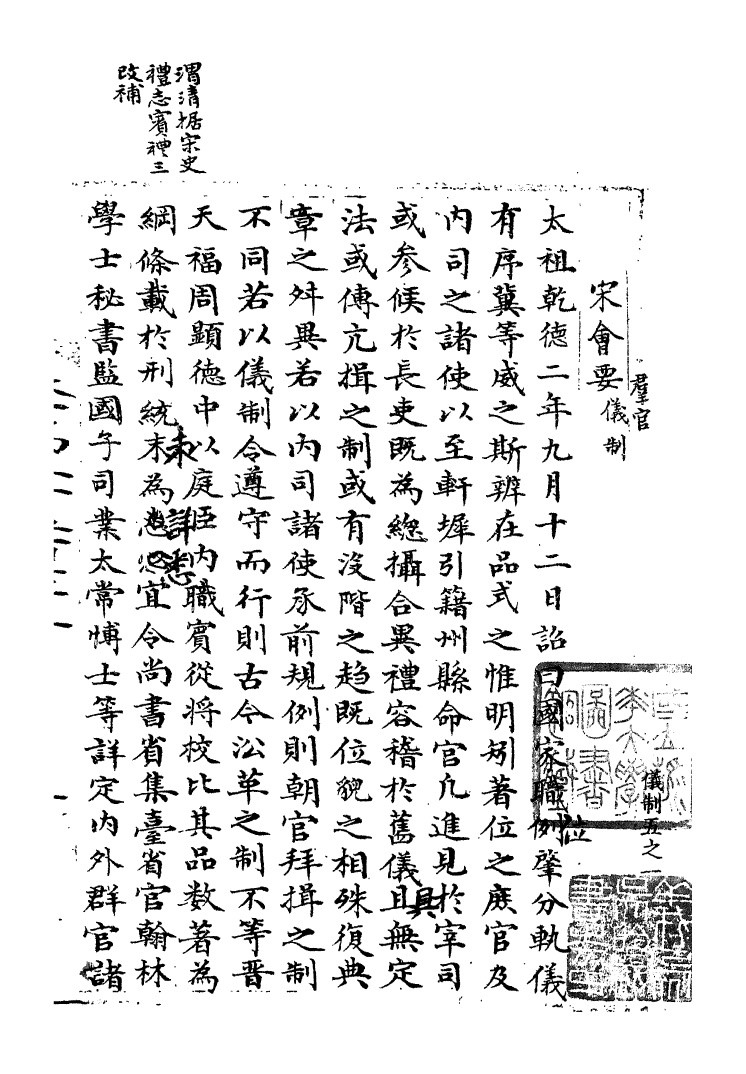 渭清據宋史
禮志賓禮三
改補
宋會要
羣官
儀制
儀制五之一
太祖乾德二年九月十二日詔曰國家職位例肇分軌儀
有序冀等威之斯辨在品式之惟明矧著位之庶官及
內司之諸使以至軒墀引籍州縣命官凡進見於宰司
或参候於長吏既為總攝合異禮容稽於舊儀且無定
具
法或傳亢揖之制或有沒階之趋既位貌之相殊復典
章之舛異若以內司諸使承前規例則朝官拜揖之制
不同若以儀制令遵守而行則古今㳂革之制不等晋
天福周顯德中以庭臣內職賓從將校比其品数著為
綱條載於刑統未為詳悉宜令尚書省集臺省官翰林
學士秘書監國子司業太常博士等詳定內外群官諸